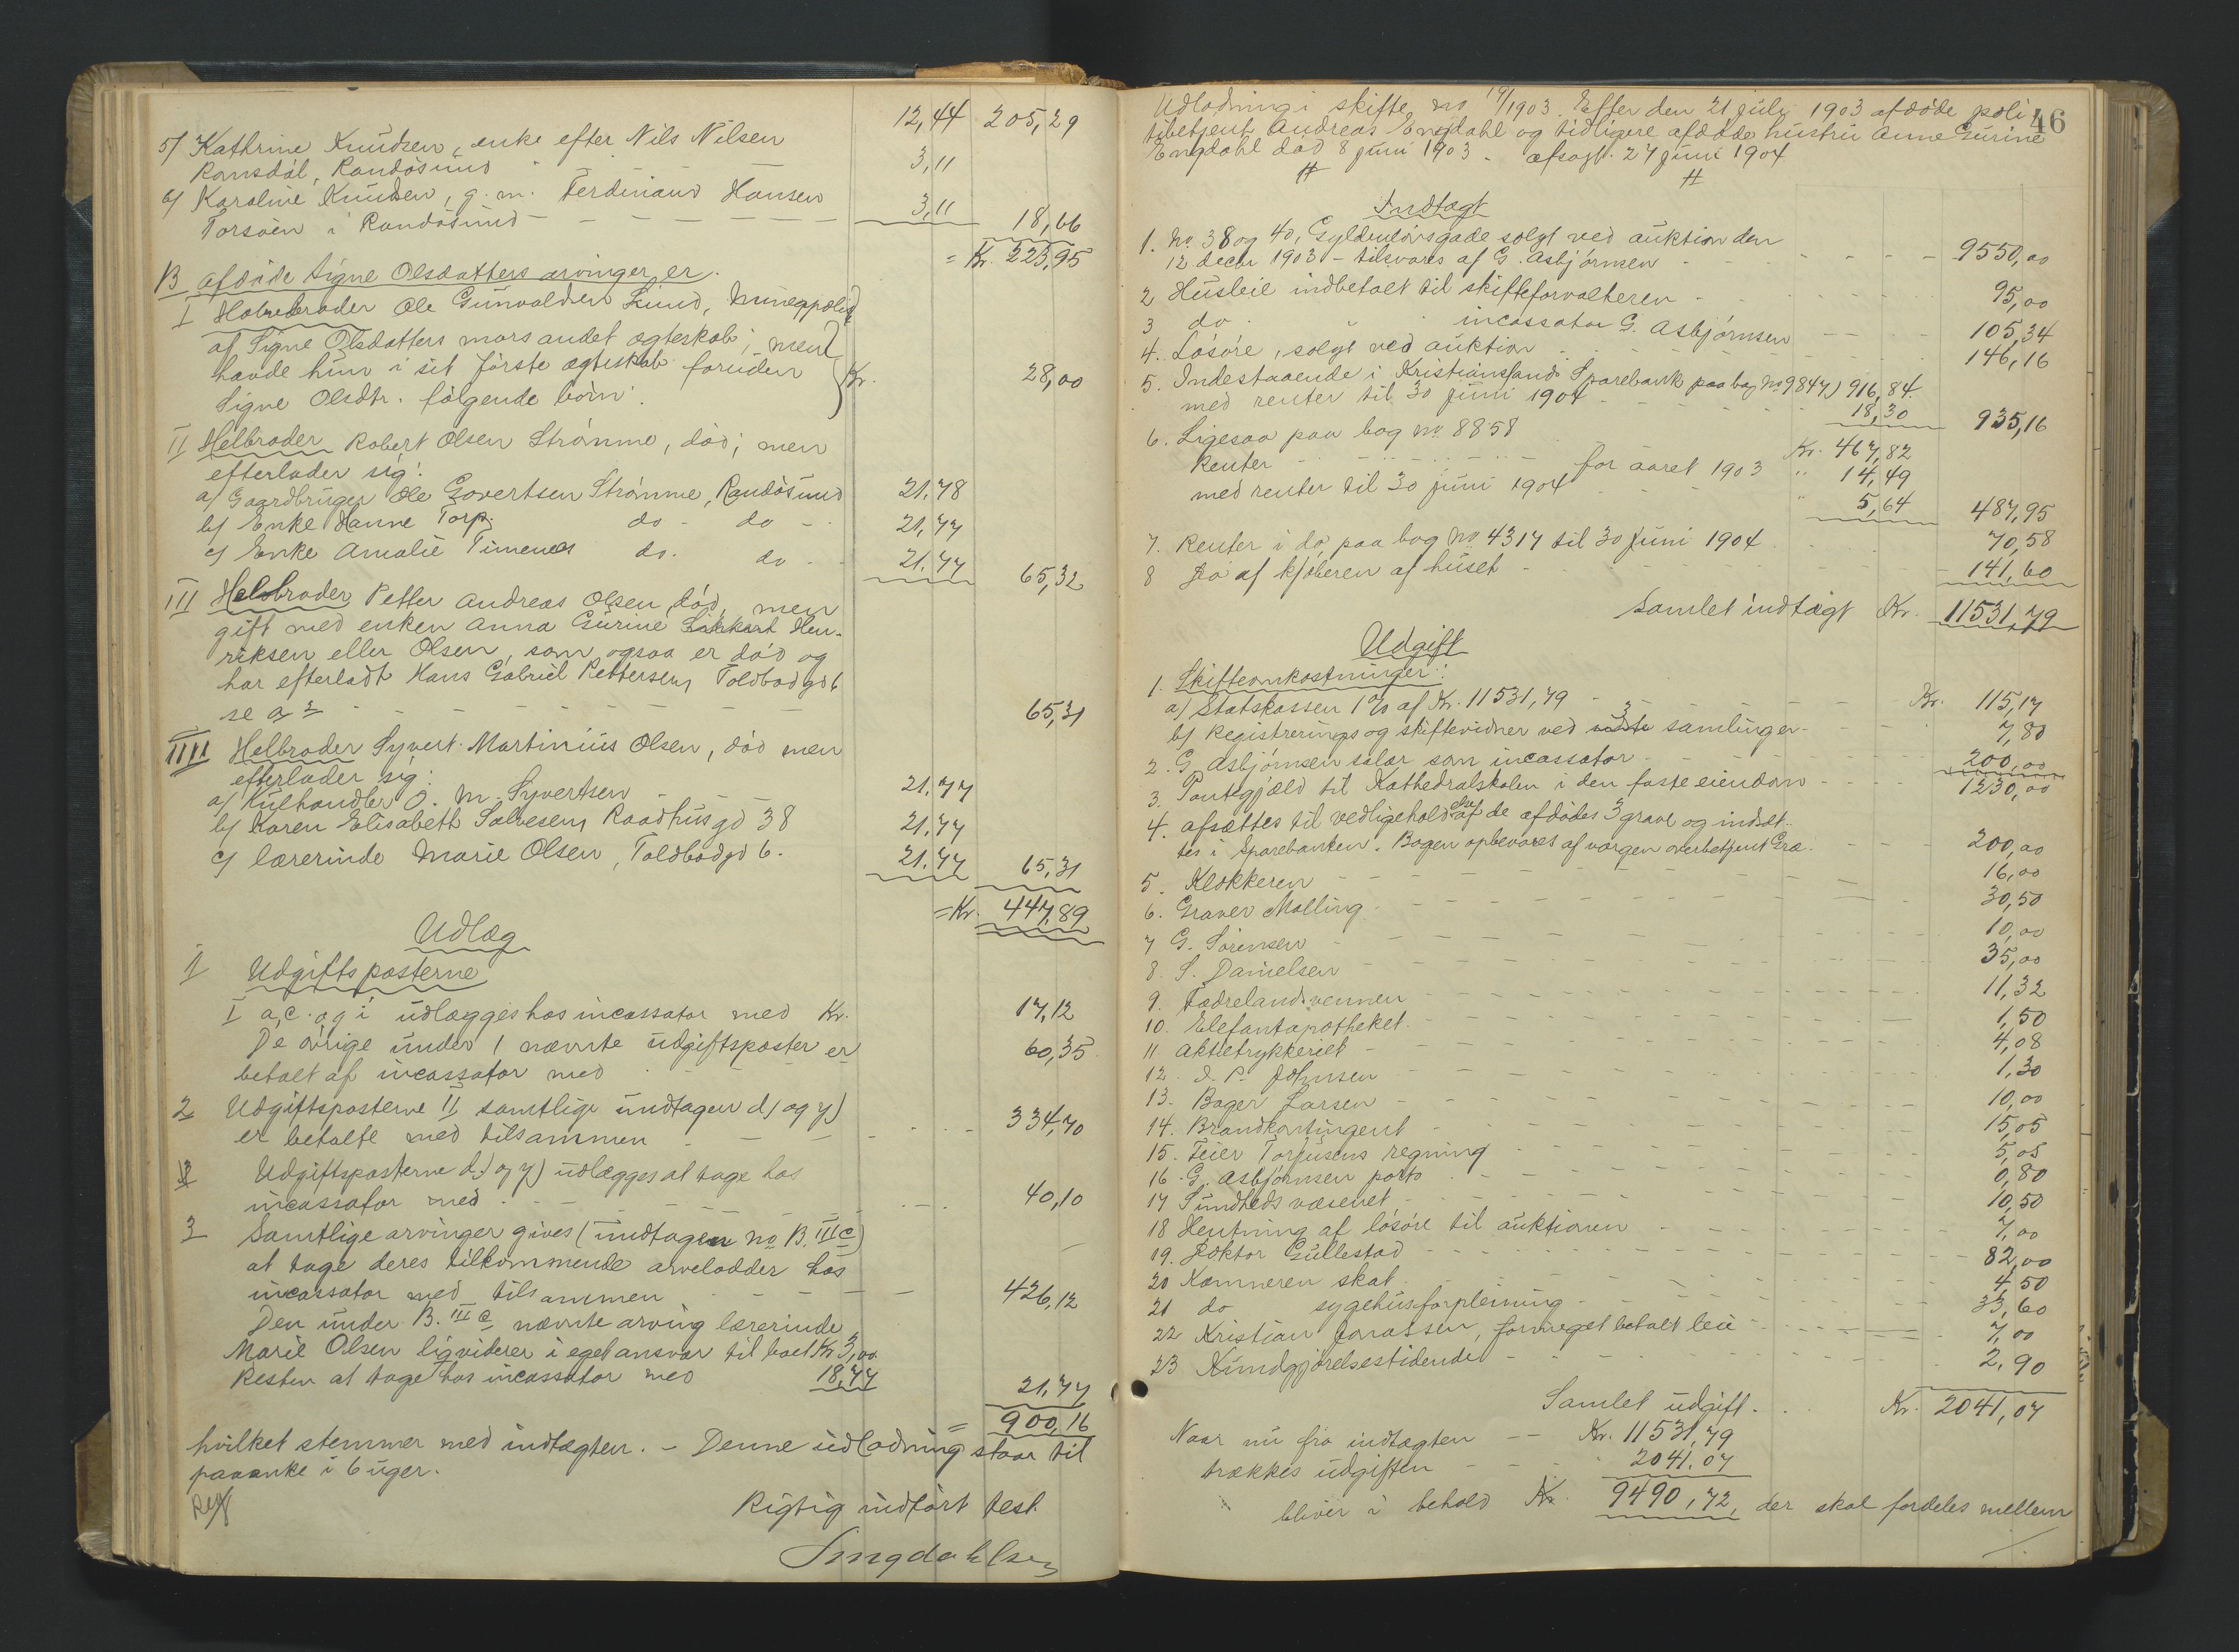 12,44 205,29
5/ Kathrine Knudsen, enke efter Nils Nilsen
Ransdal, Randøsund 3,11
6/ Karoline Knudsen, g. m. Ferdinand Hansen
Torsøen i Randøsund 3,11 18,66
= Kr. 223,95
B afdøde Signe Olsdatters arvinger er.
I Halvebroder Ole Gunvaldsen Lund, Mineapolis
af Signe Olsdatters mors andet ægteskab; men
havde hun i sit første ægteskab foruden Kr. 28,00
Signe Olsdtr. følgende børn:
II Helbroder Robert Olsen Strømme, død; men
efterlader sig:
a/ Gaardbruger Ole Govertsen Strømme, Randøsund 21,78
b/ Enke Hanne Torp do - do - 21,77
c/ Enke Amalie Timenes do. do - 21,77 65,32
III Helbroder Petter Andreas Olsen, død, men
gift med enken Anna Gurine Hen-
riksen eller Olsen, som ogsaa er død og
har efterladt Hans Gabriel Pettersen, Toldbodgd 6
se a 3 65,31
IIII Helbroder Syvert Martinius Olsen, død men
efterlader sig:
a/ Kulhandler O. M. Syvertsen 21,77
b/ Karen Elisabeth Salvesen, Raadhusgd 38 21,77
c/ lærerinde Marie Olsen, Toldbodgd 6. 21,77 65,31
= Kr. 447,89
Udlæg
1 Udgiftsposterne
I a, c. og i udlægges hos incassator med Kr. 17,12
De øvrige under 1 nævnte udgiftsposter er 60,35
betalt af incassator med
2 Udgiftsposterne II samtlige undtagen d/ og y/
er betalte med tilsammen 334,70
Udgiftsposterne d.) og y) udlægges at tage hos
incassator med 40,10
3 Samtlige arvinger gives (undtagen no B. III c)
at tage deres tilkommende arvelodder hos
incassator med tilsammen 426,12
Den under B. III c nævnte arving lærerinde
Marie Olsen ligviderer i eget ansvar til boet Kr 3,00
Resten at tage hos incassator med 18,77 21,77
= 900,16
hvilket stemmer med indtægten. - Denne udlodning staar til
paaanke i 6 uger.
Rigtig indført test.
46
Udlodning i skifte no 19/1903. Efter den 21 july 1903 afdøde poli-
tibetjent Andreas Engdahl og tidligere afdøde hustru Anne Gurine
Engdahl død 8 juni 1903. afsagt. 27 juni 1904
Indtægt
1. No. 38 og 40, Gyldenløvsgade solgt ved auktion den
12 decbr 1903 - tilsvares af G. Asbjørnsen 9550,00
2 Husleie indbetalt til skifteforvalteren 95,00
3 do. incassator G. Asbjørnsen 105,34
4. Løsøre, solgt ved auktion 146,16
5. Indestaaende i Kristianssands Sparebank paa bog No 9847) 916,84
med renter til 30 juni 1904 18,30 935,16
6. Ligesaa paa bog no. 8858 Kr. 467,82
Renter for aaret 1903 " 14,49
med renter til 30 juni 1904 " 5,64 487,95
7. Renter i do paa bog No 4317 til 30 Juni 1904 70,58
8 Do af kjøberen af huset 141,60
Samlet indtægt Kr. 11531,79
Udgift
1. Skifteomkostninger:
a/ Statskassen 1% af Kr. 11531,79 Kr. 115,17
b/ Registrerings og skiftevidner ved 3 samlinger 7,80
2. G. Asbjørnsen salær som incassator 200,00
3. Pantegjæld til Kathedralskolen i den faste eiendom 1230,00
4. afsættes til vedligehold af de afdødes 3 grave og indsæt-
tes i Sparebanken. Bogen opbevares af værgen overbetjent Gra. 200,00
5. Klokkeren 16,00
6. Graver Malling 30,50
7 G. Sørensen 10,00
8. S. Danielsen 35,00
9. Fædrelandsvennen 11,32
10. Elefantapotheket 1,50
11 Aktietrykkeriet 4,08
12. J. P. Johnsen 1,30
13. Bager Larsen 10,00
14. Brandkontingent 15,05
15. Feier Torjusens regning 5,05
16. G. Asbjørnsen porto 0,80
17 Sundhedsvæsenet 10,50
18 Hentning af løsøre til auktionen 7,00
19. Doktor Gullestad 82,00
20 Kæmneren skat 4,50
21 do sygehusforpleining 33,60
22 Kristian Jonassen, formeget betalt leie 7,00
23 Kundgjørelsestidende 2,90
Samlet udgift. Kr. 2041,07
Naar nu fra indtægten Kr. 11531,79
trækkes udgiften 2041,07
bliver i behold Kr. 9490,72, der skal fordeles mellem